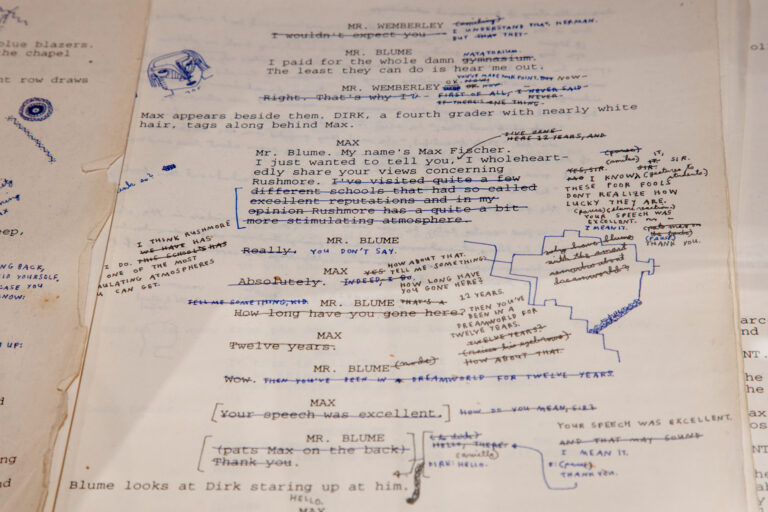 blue blazers.
the chapel
nt row draws
MR. WEMBERLEY
I wouldn't expect you
I UNDERSTAND THAT, HERMAN.
BUT THEY-
MR. BLUME
NATATORIUM.
I paid for the whole damn gymnasium.
The least they can do is hear me out.
YOU'VE MADE YOUR POINT. BUT NOW-
MR. WEMBERLEY
Right. That's why I
FIRST OF ALL, I NEVER SAID-
IF THERE'S ONE THING-
Max appears beside them. DIRK, a fourth grader with nearly white
hair, tags along behind Max.
MAX
HERE 12 YEARS, AND
Mr. Blume. My name's Max Fischer.
I just wanted to tell you, I wholeheart-
edly share your views concerning
Rushmore. I've visited quite a few
different schools that had so called
excellent reputations and in my
opinion Rushmore has a quite a bit
more stimulating atmosphere.
YES, SIR.
I KNOW
THESE POOR FOOLS
DONT REALIZE HOW
LUCKY THEY ARE.
YOUR SPEECH WAS
EXCELLENT.
I MEAN IT.
(pause)
THANK YOU.
I THINK RUSHMORE
WE HAVE HAS
I DO. THIS SCHOOLS HAS
ONE OF THE MOST
ULATING ATMOSPHERES
U CAN GET.
MR. BLUME
Really. YOU DON'T SAY.
MAX
HOW ABOUT THAT.
YES TELL ME SOMETHING:
Absolutely. INDEED, I DO.
HOW LONG HAVE
YOU GONE HERE?
TELL ME SOMETHING, KID.
MR. BLUME
THAT'S A
How long have you gone here?
12 YEARS.
THEN YOU'VE
BEEN IN A
DREAMWORLD FOR
TWELVE YEARS.
TWELVE YEARS?
HOW ABOUT THAT.
MAX
Twelve years.
MR. BLUME (nods)
Wow. THEN YOU'VE BEEN IN A DREAMWORLD FOR TWELVE YEARS.
MAX
[Your speech was excellent.] HOW DO YOU MEAN, SIR?
MR. BLUME
(pats Max on the back)
Thank you.
(to dirk)
HELLO, THERE.
DIRK: HELLO.
YOUR SPEECH WAS EXCELLENT.
AND THAT MAY SOUND
I MEAN IT.
B: (pause)
THANK YOU.
Blume looks at Dirk staring up at him.
HELLO.
MAX
NG BACK,
ID YOURSELF,
CASE YOU
KNOW:
UP: